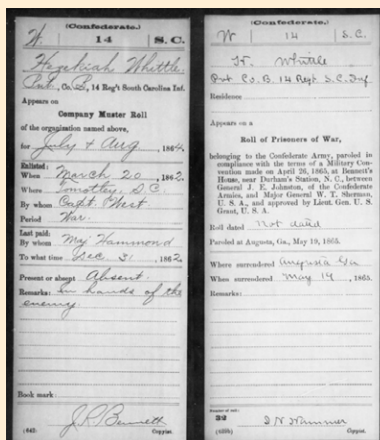 (Confederate.)
W 14 S. C.
Hezekiah Whittle
Pvt, Co. B, 14 Reg't South Carolina Inf.
Appears on
Company Muster Roll
of the organization named above,
for July & Aug, 1864.
Enlisted:
When March 20, 1862.
Where S.C.
By whom Capt. West
Period War.
Last paid:
By whom Maj Hammond
To what time Dec. 31, 1862.
Present or absent Absent.
Remarks: in hands of the
enemy.
Book mark:
J. P. Bennett
(642) Copyist.
(Confederate.)
W 14 S. C.
H. Whittle
Pvt Co. B. 14 Regt. S.C. Inf.
Residence
Appears on a
Roll of Prisoners of War,
belonging to the Confederate Army, paroled in
compliance with the terms of a Military Con-
vention made on April 26, 1865, at Bennett's
House, near Durham's Station, N. C., between
General J. E. Johnston, of the Confederate
Armies, and Major General W. T. Sherman,
U. S. A., and approved by Lieut. Gen. U. S.
Grant, U. S. A.
Roll dated Not dated
Paroled at Augusta, Ga., May 19, 1865.
Where surrendered Augusta Ga
When surrendered May 14, 1865.
Remarks:
Number of roll:
32
Copyist.